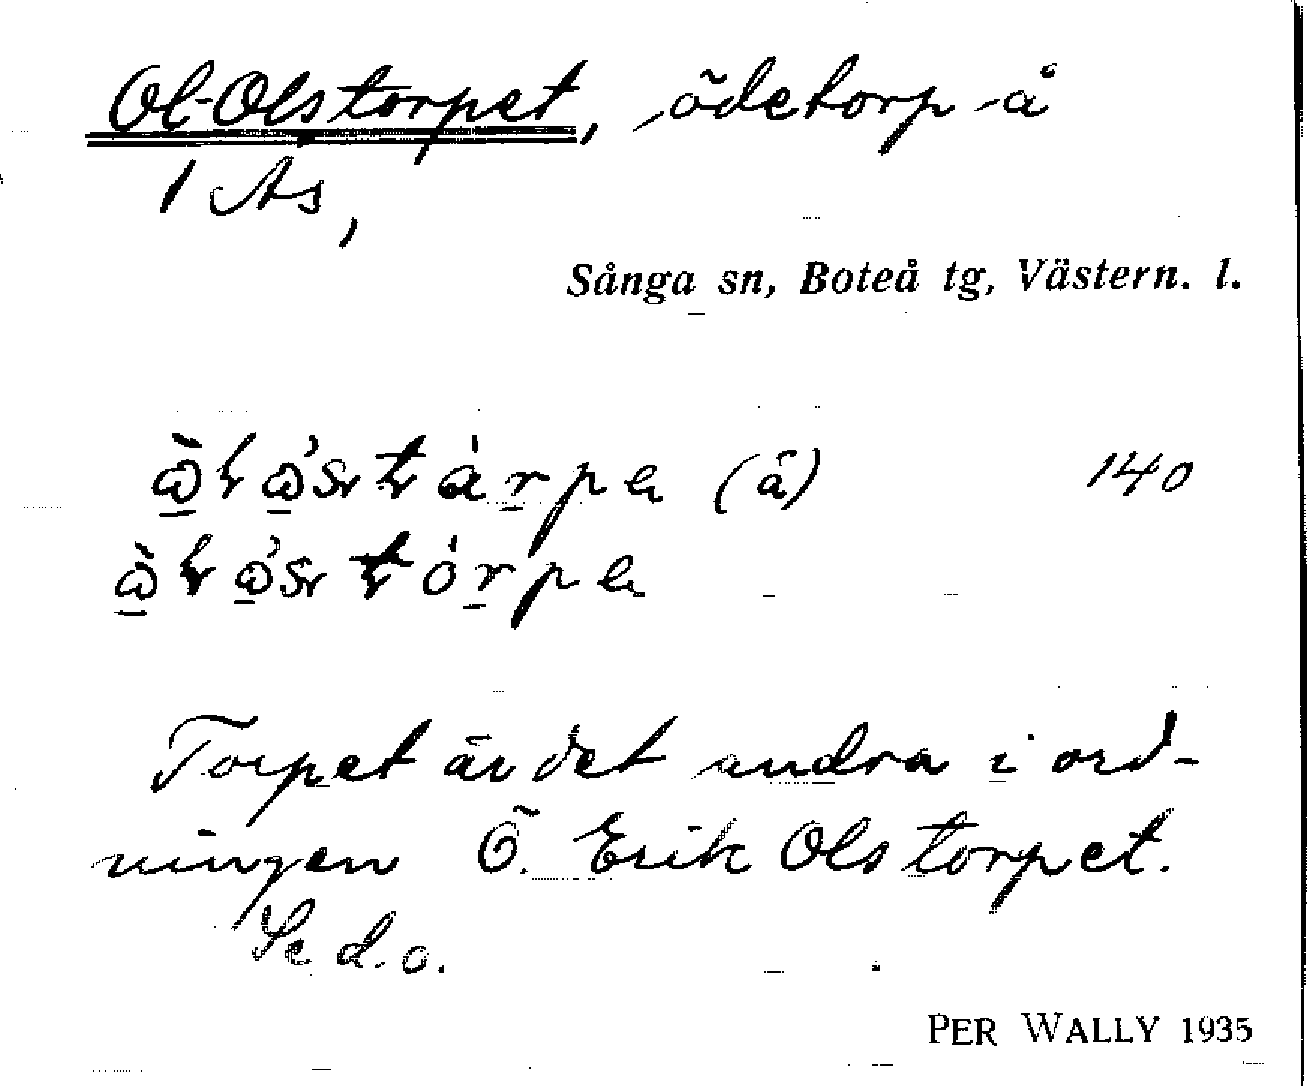 Ol-Olstorpet, ödetorp å
1 Ås,
Sånga sn, Boteå tg, Västern. l.
(å) 140
Torpet är det andra i ord-
ningen Ö. Erik Olstorpet.
Se d.o.
PER WALLY 1935